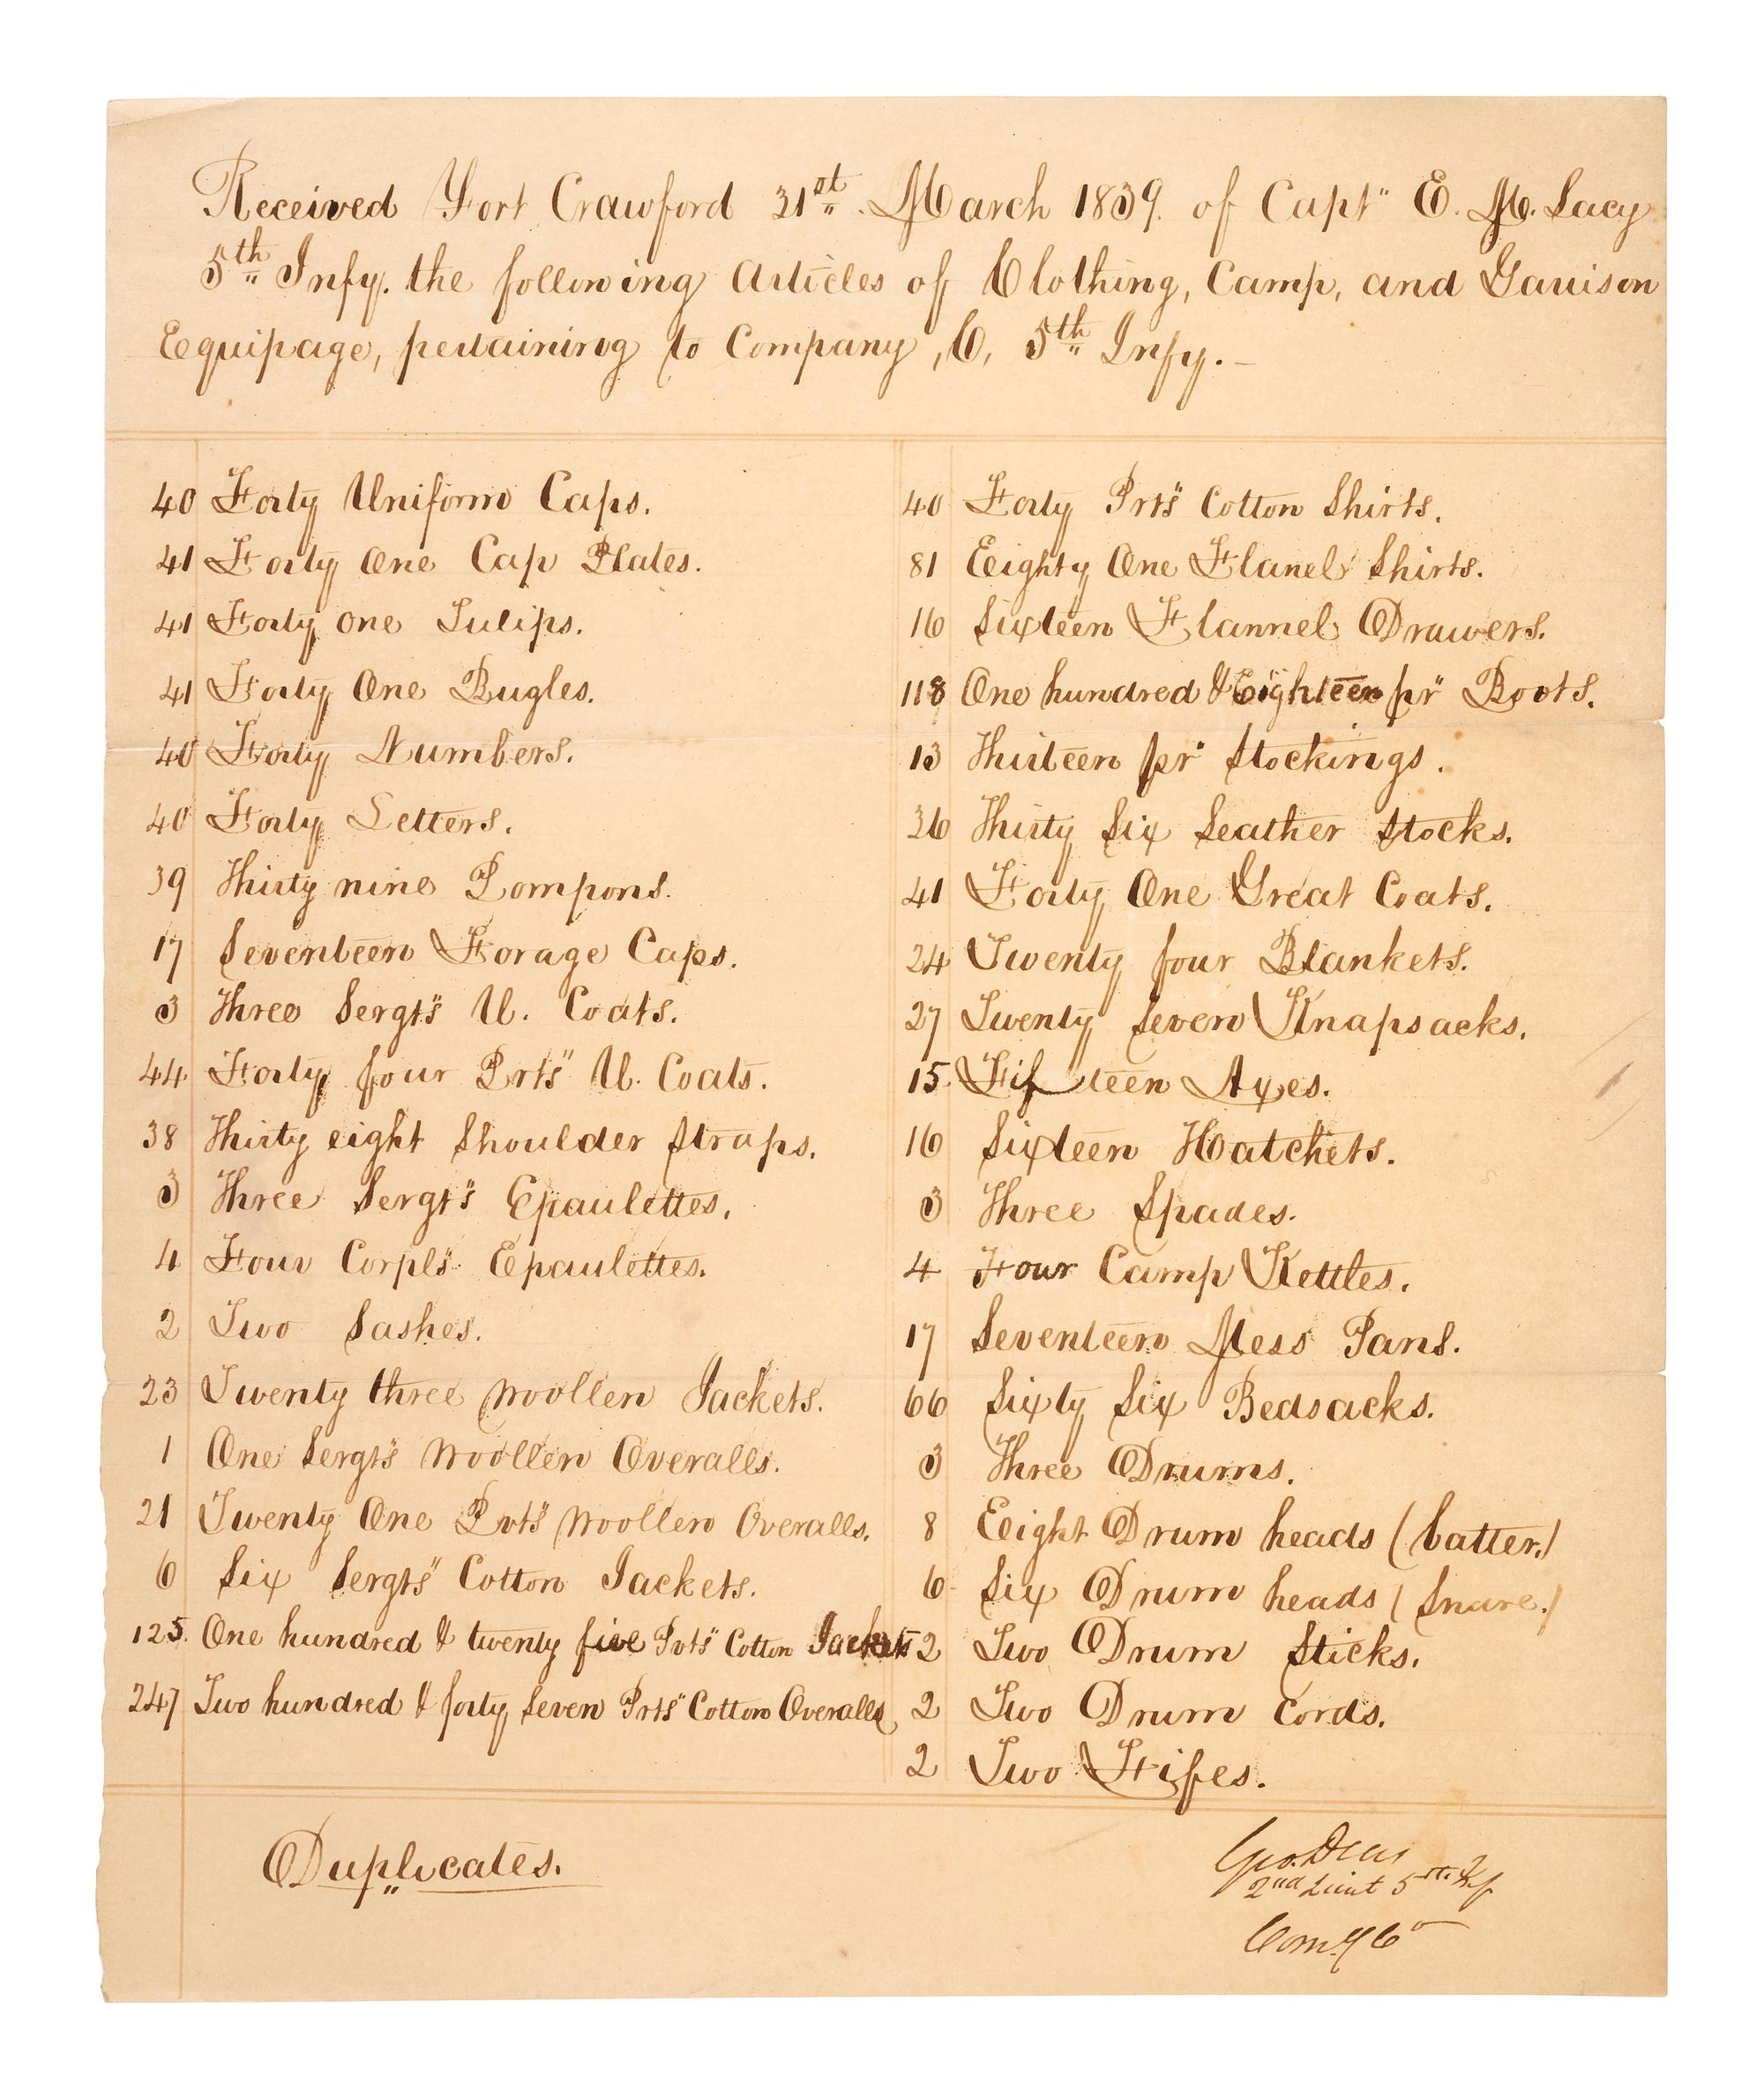 Received Fort Crawford 31st March 1839. of Capt" E. M. Lacy
5th Infy. the following Articles of Clothing, Camp, and Garrison
Equipage, pertaining to Company, C, 5th Infy. —
40 Forty Uniform Caps.
41 Forty One Cap Plates.
41 Forty one Tulips.
41 Forty One Bugles.
40 Forty Numbers.
40 Forty Letters.
39 Thirty nine Pompons.
17 Seventeen Forage Caps.
3 Three Sergt"s U. Coats.
44 Forty four Prts" U. Coats.
38 Thirty eight Shoulder Straps.
3 Three Sergt"s Epaulettes.
4 Four Corpls" Epaulettes.
2 Two Sashes.
23 Twenty three Woollen Jackets.
1 One Sergts" Woollen Overalls.
21 Twenty One Pvts" Woollen Overalls.
6 Six Sergts" Cotton Jackets.
125. One hundred & twenty five Pvts" Cotton Jackets
247 Two hundred & forty Seven Prts" Cotton Overalls
40 Forty Prts" Cotton Shirts.
81 Eighty One Flanel Shirts.
16 Sixteen Flannel Drawers.
118 One hundred & Eighteen pr" Boots.
13 Thirteen pr" Stockings.
36 Thirty Six Leather Stocks.
41 Forty One Great Coats.
24 Twenty four Blankets.
27 Twenty Seven Knapsacks.
15. Fifteen Axes.
16 Sixteen Hatchets.
3 Three Spades.
4 Four Camp Kettles.
17 Seventeen Mess Pans.
66 Sixty Six Bedsacks.
3 Three Drums.
8 Eight Drum heads (batter.)
6 Six Drum heads (Snare.)
2 Two Drum Sticks.
2 Two Drum Cords.
2 Two Fifes.
Duplicates.
Geo. Deas
2nd Lieut 5th Inf
Comg Co